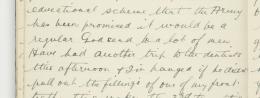 educational scheme that the Army
has been promised it would be a
regular Godsend to a lot of men
Have had another trip to the dentists
this afternoon & I'm hanged if he didn't
pull out the fillings of one of my front